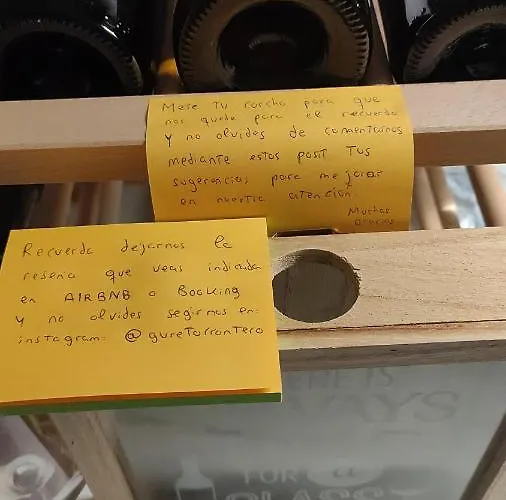 Mete Tu corcho para que
nos quede para el recuerdo
y no olvides de comentarnos
mediante estos posit Tus
sugerencias para mejorar
en nuestra atención.
Muchas
Gracias
Recuerda dejarnos la
reseña que veas indicada
en AIRBNB o Booking
y no olvides segirnos en:
instagram: @gureTorronTero
IS
WAYS
FOR a
GLASS